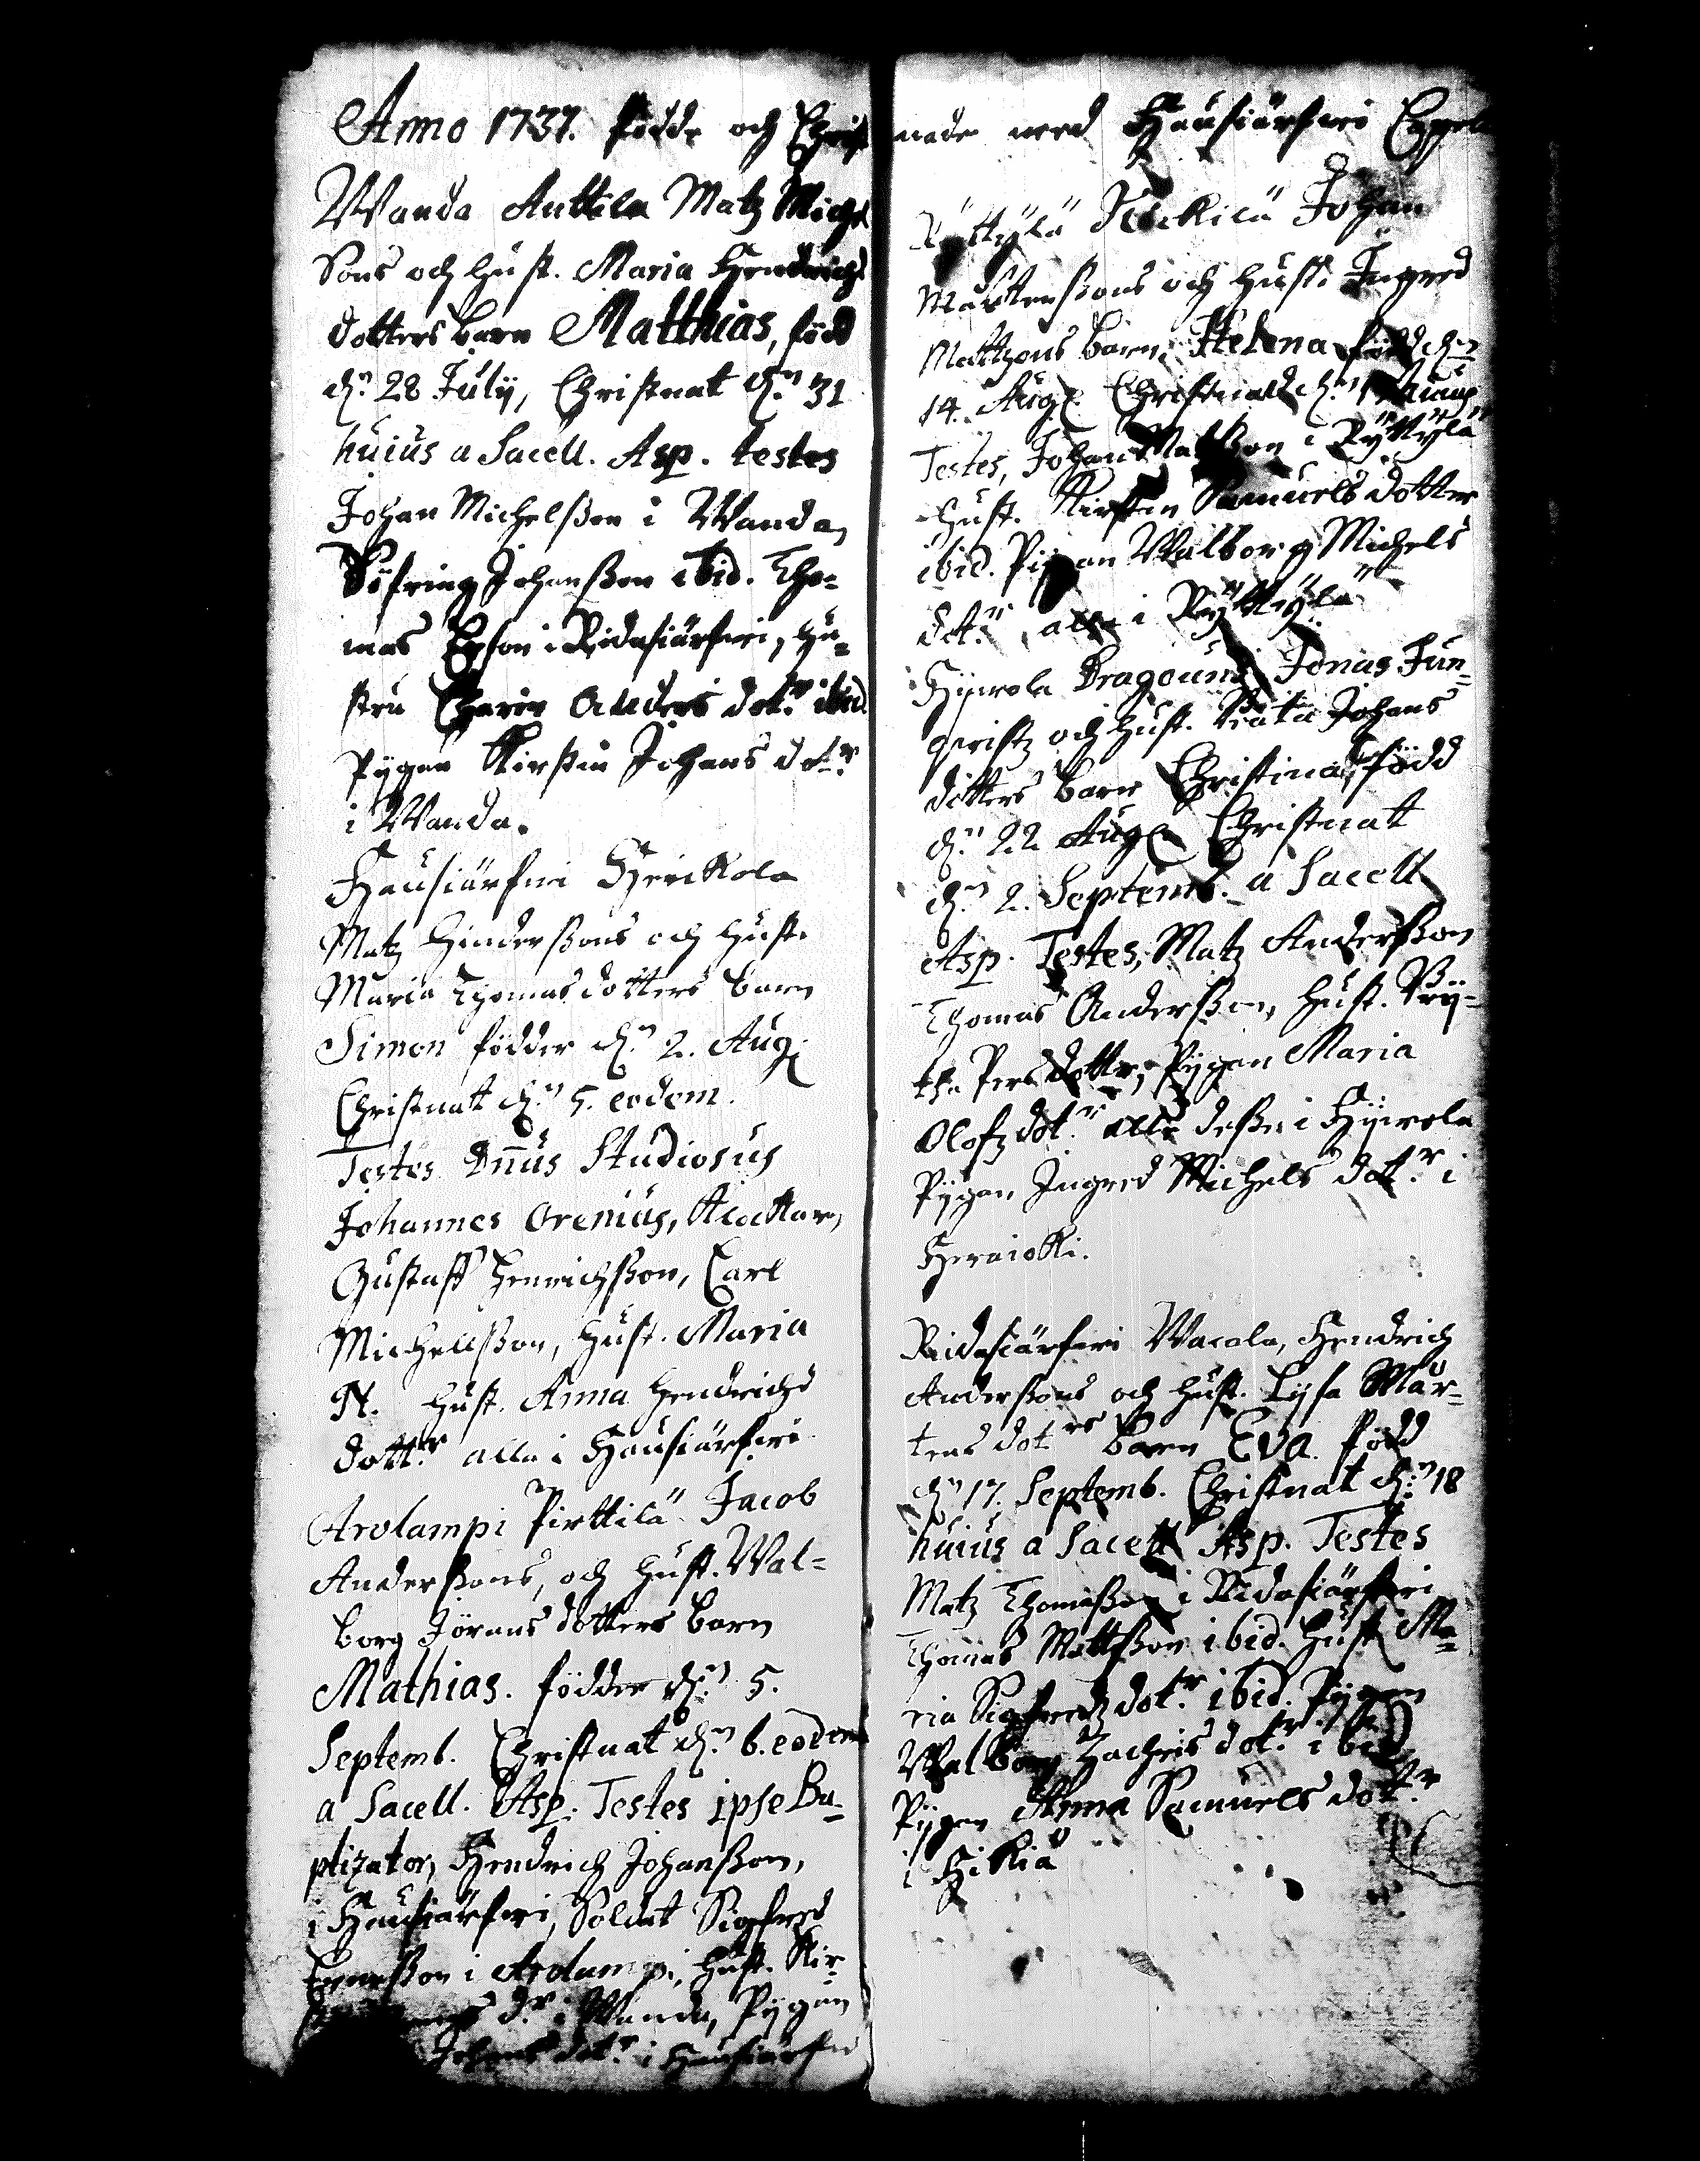 Anno 1737. födde och Christ
Wanda Anttila Matz Michel
Sons och hust. Maria Hendrichs
dotters barn Matthias, född
dn. 28 Julij, Christnat dn. 31
huius a Sacell. Asp. testes
Johan Michelsson i Wanda,
Sifring Johansson ibid. Tho-
mas Erson i Ridasiärfwi, hu-
stru Charin Anders dotr. ibid
Pygan Kirstin Johans dotr.
i Wanda.
Hausiärfwi Herickola
Matz Hinderssons och hust.
Maria Thomas dotters barn
Simon födder dn. 2. Aug:
Christnat dn. 5. eodem.
Testes Dnus Studiosus
Johannes Orenius, Klockar,
Gustaff Henrichsson, Carl
Michellsson, hust. Maria
N. hust. Anna Hendrichs
dottr. alla i Hausiärfwi
Arolampi Pirttilä Jacob
Anderssons, och hust. Wal-
borg Jörans dotters barn
Mathias. födder dn. 5.
Septemb. Christnat dn. 6. eodem
a Sacell. Asp. Testes ipse Ba-
ptizator, Hendrich Johansson,
i Hausiärfwi, Soldat Sigfred
i Arolampi, hust. Kir-
dr. i Wanda, Pygan
Johans dotr. i Hausiärfwi
nade wed Hausiärfwi Cappell
Ryttylä Johan
Mårtenssons och hust. Ingred
Mattzons barn, Helena född dn.
14. Aug. Christnad dn. huius
Testes, Johan Matsson i Ryttylä
Hust. Kirstin Samuels dotter
ibid. Pigan Walborg Michels
dotr. alla i Ryttylä
Hywola Dragouns Jonas Jun-
qwistz och hust. Johans
dotters barn Christina, född
dn. 22 Aug. Christnat
dn. 2. Septemb. a Sacell
Asp. Testes, Matz Andersson
Thomas Andersson, hust. Bry-
tha Pers dottr, Pygan Maria
Olofz dotr. alla desse i Hywola
Pygan Ingred Michels dotr. i
Herajoki.
Ridasiärfwi Wacala, Hendrich
Anderssons och hust. Lysa Mår-
tens dotrs barn Eva. född
dn. 17. Septemb. Christnat dn. 18
huius a Sacell Asp. Testes
Matz Thomasson i Ridasiärfwi
Thomas Mattsson ibid. hust Ma-
ria Sigfredz dotr. ibid. Pygan
Walborg Zachris dotr. ibid
Pygan Anna Samuels dottr.
i Hikiä